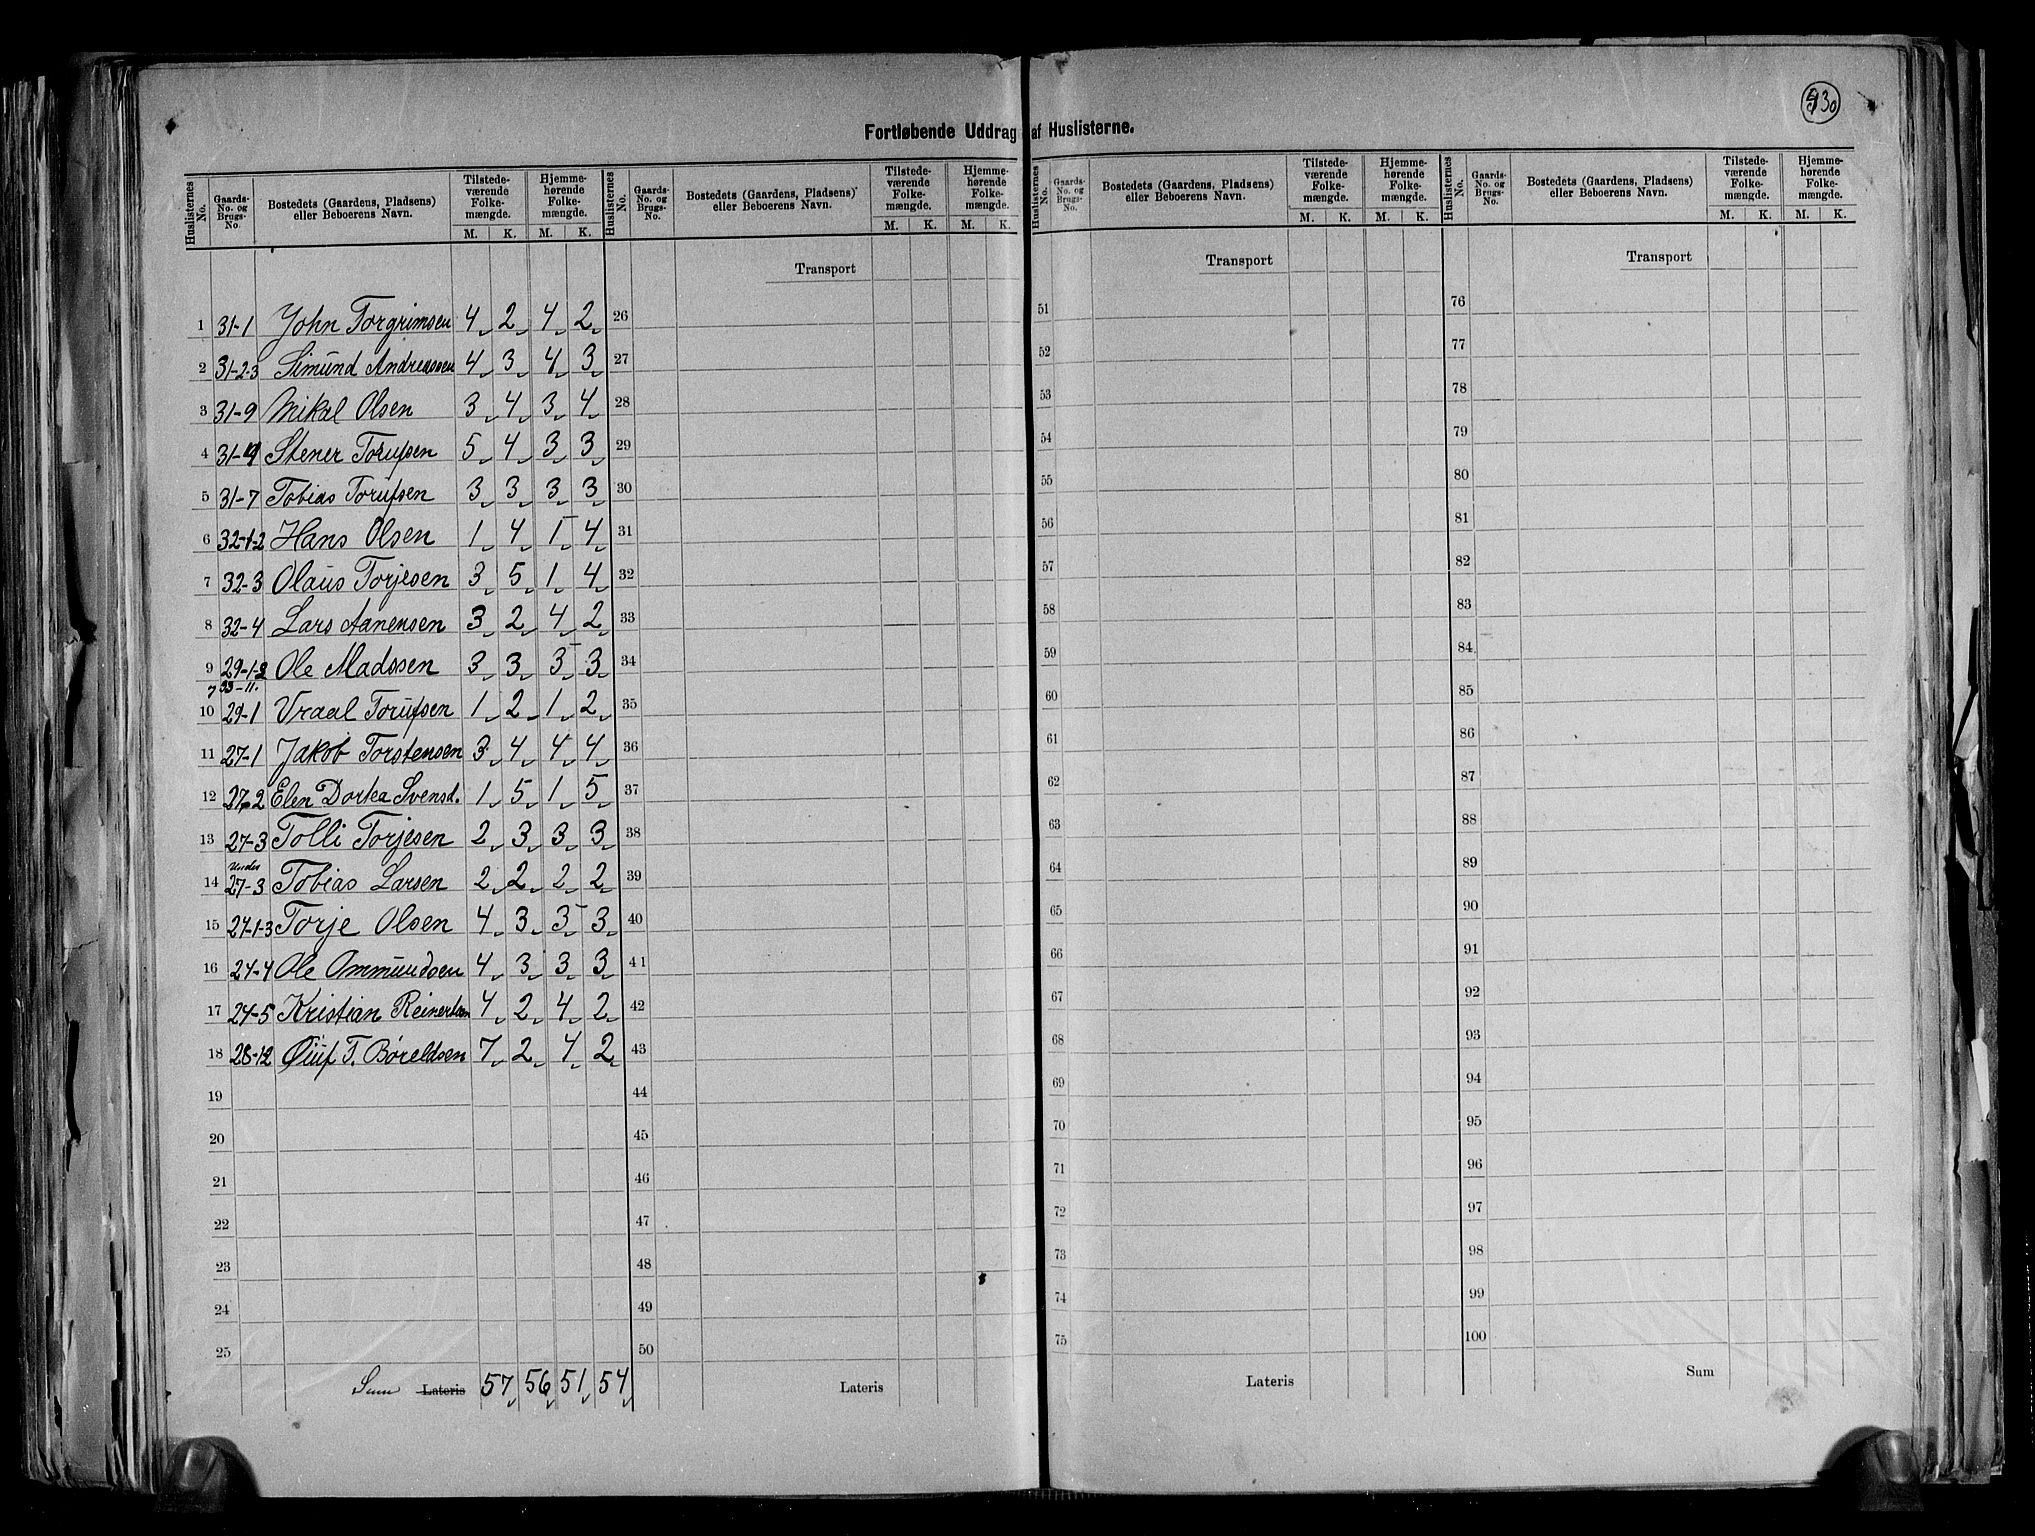 Fortløbende Uddrag af Huslisterne.
Huslisternes No. | Gaards-No. og Brugs-No. | Bostedets (Gaardens, Pladsens) eller Beboerens Navn. | Tilstedeværende Folkemængde. M. K. | Hjemmehørende Folkemængde. M. K.
Huslisternes No. | Gaards-No. og Brugs-No. | Bostedets (Gaardens, Pladsens) eller Beboerens Navn. | Tilstedeværende Folkemængde. M. K. | Hjemmehørende Folkemængde. M. K.
Huslisternes No. | Gaards-No. og Brugs-No. | Bostedets (Gaardens, Pladsens) eller Beboerens Navn. | Tilstedeværende Folkemængde. M. K. | Hjemmehørende Folkemængde. M. K.
Huslisternes No. | Gaards-No. og Brugs-No. | Bostedets (Gaardens, Pladsens) eller Beboerens Navn. | Tilstedeværende Folkemængde. M. K. | Hjemmehørende Folkemængde. M. K.
Transport Transport Transport
1 31-1 John Torgrimsen 4 2 4 2 26 51 76
2 31-2-3 Simund Andreassen 4 3 4 3 27 52 77
3 31-9 Mikal Olsen 3 4 3 4 28 53 78
4 31-4 Stener Torufsen 5 4 3 3 29 54 79
5 31-7 Tobias Torufsen 3 3 3 3 30 55 80
6 32-1-2 Hans Olsen 1 4 1 4 31 56 81
7 32-3 Olaus Torjesen 3 5 1 4 32 57 82
8 32-4 Lars Aanensen 3 2 4 2 33 58 83
9 29-1-2 Ole Madssen 3 3 5 3 34 59 84
33-11.
10 29-1 Vraal Torufsen 1 2 1 2 35 60 85
11 27-1 Jakob Torstensen 3 4 4 4 36 61 86
12 27-2 Elen Dortea Svensd. 1 5 1 5 37 62 87
13 27-3 Tolli Torjesen 2 3 3 3 38 63 88
Under
14 27-3 Tobias Larsen 2 2 2 2 39 64 89
15 24-1-3 Torje Olsen 4 3 5 3 40 65 90
16 24-4 Ole Ommundsen 4 3 3 3 41 66 91
17 24-5 Kristian Reinertsen 4 2 4 2 42 67 92
18 28-12 T. Børeldsen 7 2 4 2 43 68 93
19 44 69 94
20 45 70 95
21 46 71 96
22 47 72 97
23 48 73 98
24 49 74 99
25 50 75 100
Sum Lateris 57 56 51 54 Lateris Lateris Sum